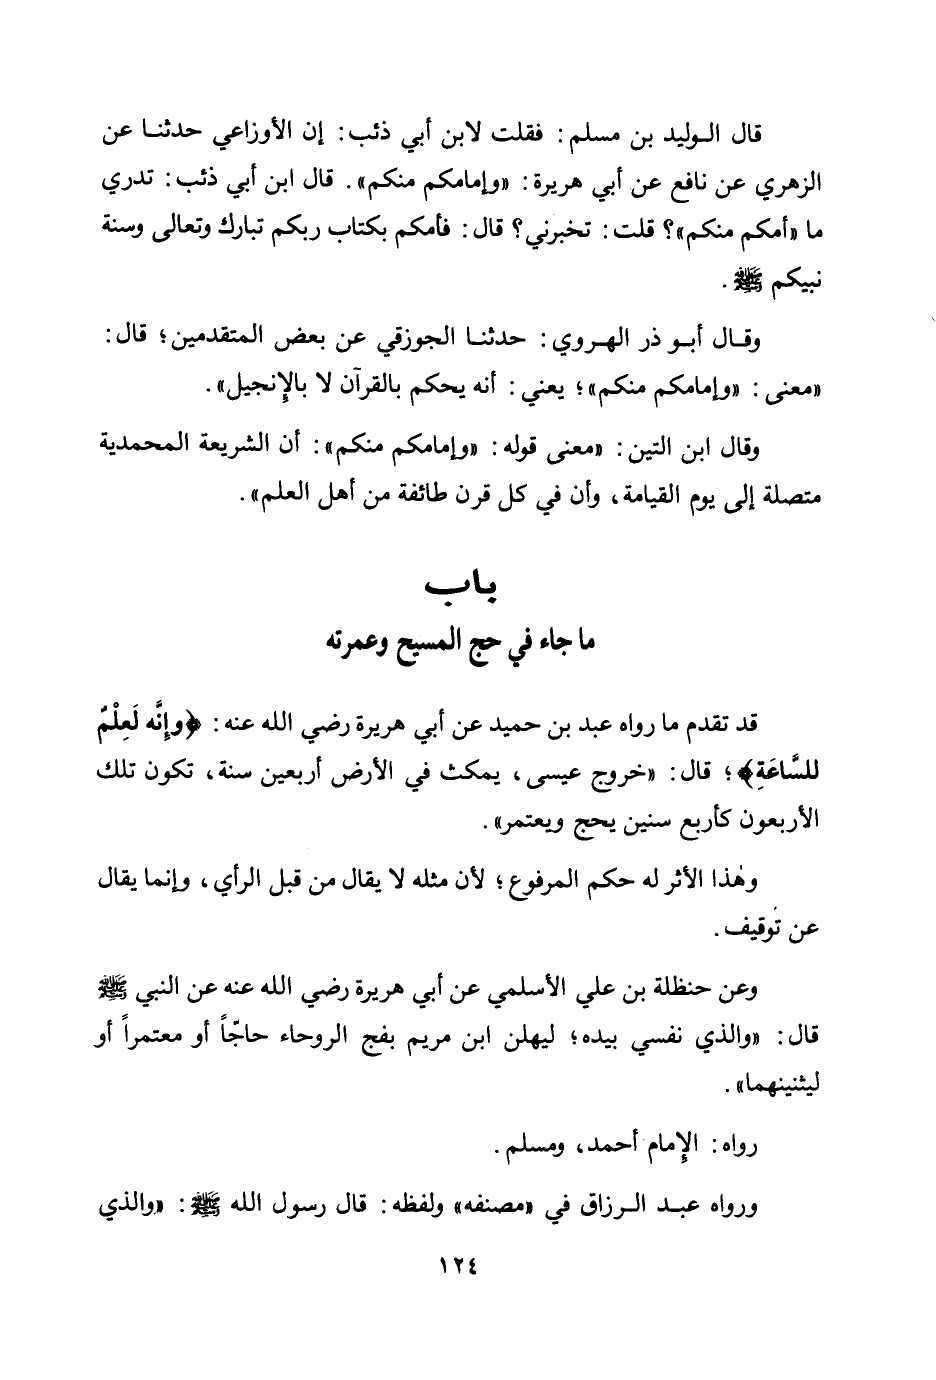 قال الوليد بن مسلم: فقلت لابن أبي ذئب: إن الأوزاعي حدثنا عن
الزهري عن نافع عن أبي هريرة: «وإمامكم منكم». قال ابن أبي ذئب: تدري
ما «أمكم منكم»؟ قلت: تخبرني؟ قال: فأمكم بكتاب ربكم تبارك وتعالى وسنة
نبيكم ﷺ.
وقال أبو ذر الهروي: حدثنا الجوزقي عن بعض المتقدمين؛ قال:
«معنى: «وإمامكم منكم»؛ يعني: أنه يحكم بالقرآن لا بالإنجيل».
وقال ابن التين: «معنى قوله: «وإمامكم منكم»: أن الشريعة المحمدية
متصلة إلى يوم القيامة، وأن في كل قرن طائفة من أهل العلم».
باب
ما جاء في حج المسيح وعمرته
قد تقدم ما رواه عبد بن حميد عن أبي هريرة رضي الله عنه: ﴿وإِنَّه لَعِلْمٌ
للسَّاعَةِ﴾؛ قال: «خروج عيسى، يمكث في الأرض أربعين سنة، تكون تلك
الأربعون كأربع سنين يحج ويعتمر».
وهٰذا الأثر له حكم المرفوع؛ لأن مثله لا يقال من قبل الرأي، وإنما يقال
عن تَوقيف.
وعن حنظلة بن علي الأسلمي عن أبي هريرة رضي الله عنه عن النبي ﷺ
قال: «والذي نفسي بيده؛ ليهلن ابن مريم بفج الروحاء حاجّاً أو معتمراً أو
ليثنينهما».
رواه: الإمام أحمد، ومسلم.
ورواه عبد الرزاق في «مصنفه» ولفظه: قال رسول الله ﷺ: «والذي
١٢٤